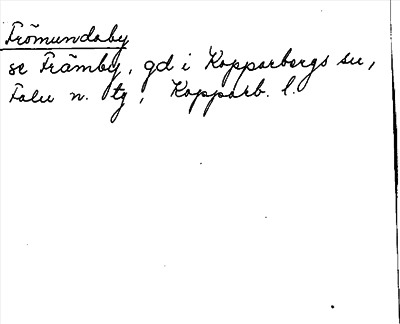 Frömundaby
se Främby, gd i Kopparbergs sn,
Falu n. tg, Kopparb. l.